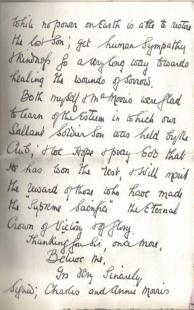 While no power on Earth is able to restore
the lost Son; yet human Sympathy
& kindness go a very long way towards
healing the wounds of sorrow.
Both myself & Mrs Morris were glad
to learn of the Esteem in which our
Gallant Soldier Son was held by the
Club, & we Hope & pray God that
He has won the rest, & will
the reward of those who have made
the "Supreme Sacrifice" the Eternal
Crown of Victory & Glory.
Thanking you Sir, once more,
Believe Me,
Yrs Very Sincerely
Signed; Charles and Annie Morris